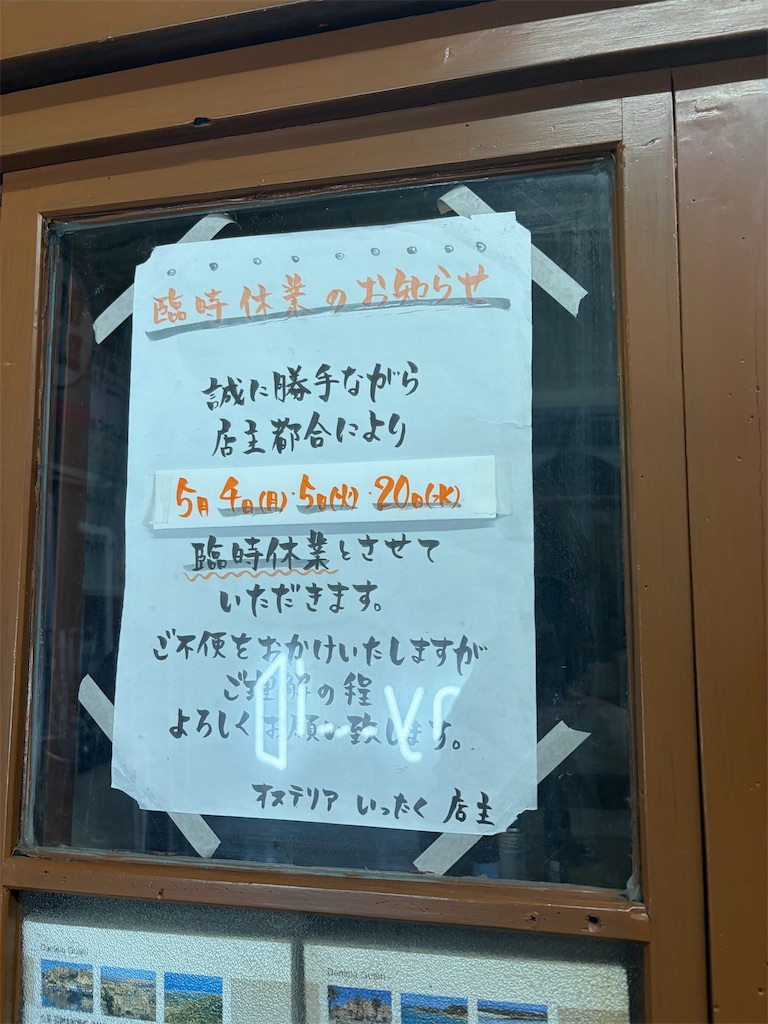 臨時休業のお知らせ
誠に勝手ながら
店主都合により
5月4日(月)・5日(火)・20日(水)
臨時休業とさせて
いただきます。
ご不便をおかけいたしますが
ご理解の程
よろしくお願い致します。
オステリア いったく 店主